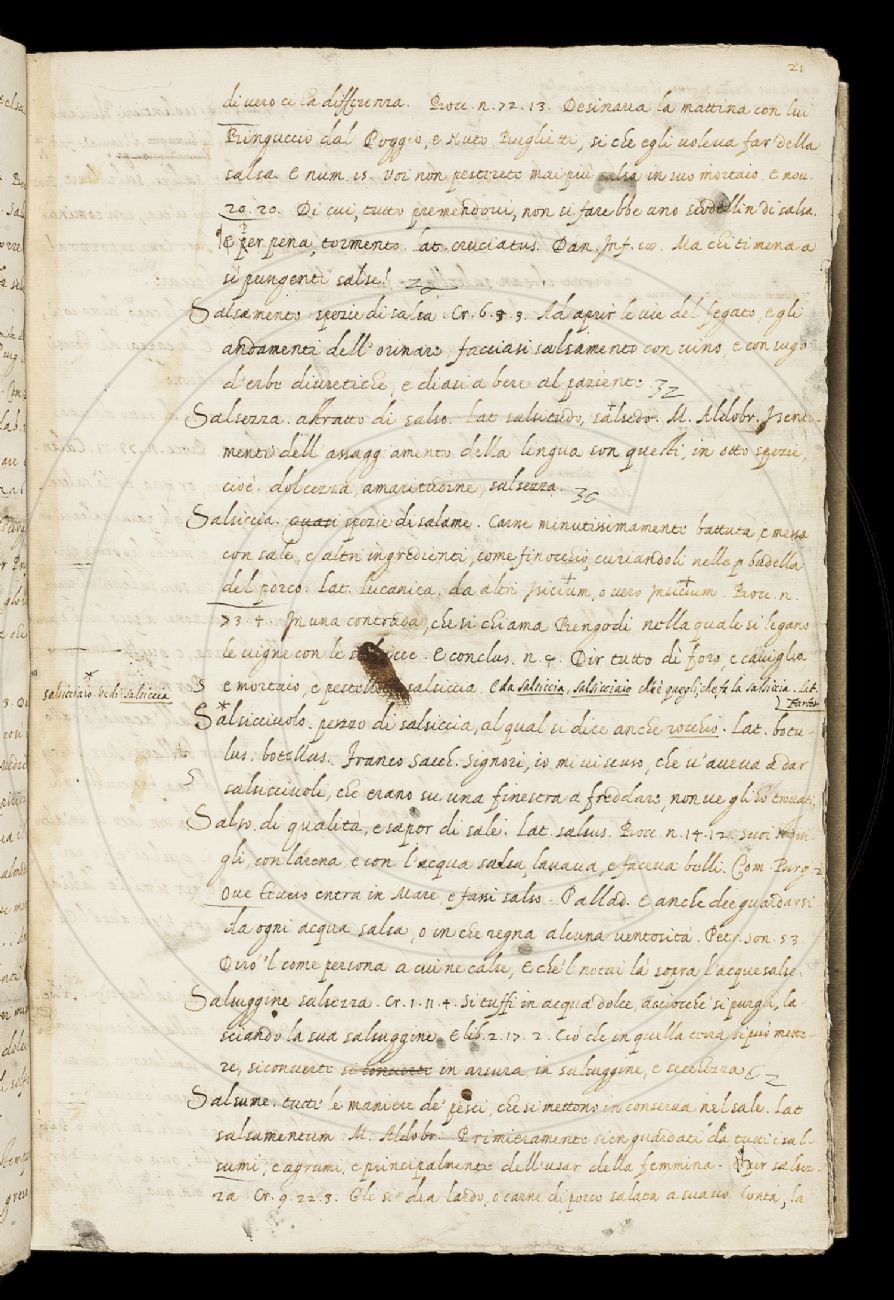 21
di vero ci ha differenza. Bocc. n. 72. 13. Desinava la mattina con lui
Binguccio dal Poggio, e Nuto Buglietti, sì che egli voleva far della
salsa. E num. 15. Voi non pesterete mai più salsa in suo mortaio. E nov.
20. 20. Di cui, tutto premendovi, non si farebbe uno scodellin di salsa.
¶ E per pena, tormento. lat. cruciatus. Dan. Inf. 18. Ma chi ti mena a
sì pungenti salse!
Salsamento. spezie di salsa. Cr. 6. 3. 3. Ad aprir le vie del fegato, e gli
andamenti dell'orinare, facciasi salsamento con vino, e con sugo
d'erbe diuretiche, e diasi a bere al paziente 32
Salsezza. astratto di salso. Lat. salsitudo, salsedo. M. Aldobr. I senti-
menti dell'assaggiamento della lingua son questi, in otto spezie,
cioè. dolcezza, amaritudine, salsezza. 30
Salsiccia. quasi spezie di salame. Carne minutissimamente battuta, e messa
con sale, e altri ingredienti, come finocchio, curiandoli nelle budella
del porco. Lat. lucanica. da altri Isicium, o vero Insicium. Bocc. n.
73. 4. In una contrada, che si chiama Bengodi nella quale si legano
le vigne con le E conclus. n. 4. Dir tutto dì foro, e caviglia
salsicciaio vedi salsiccia
e mortaio, e pestello, e salsiccia. E da salsiccia, salsicciaio che è quegli, che fa la salsiccia. Lat.
fartor
Salsicciuolo. pezzo di salsiccia, al qual si dice anche rocchio. Lat. botu-
lus. botellus. Franco Sacch. Signori, io mi vi scuso, che v'aveva a dar
salsicciuoli, che erano su una finestra a freddare, non ve gli ho trovati,
Salso. di qualità, e sapor di sale. Lat. salsus. Bocc. n. 14. 12. Suoi stovi-
gli, con la rena, e con l'acqua salsa, lavava, e faceva belli. Com. Purg. 2
Ove Tevero entra in Mare, e fassi salso. Pallad. E anche dee guardarsi
da ogni acqua salsa, o in che regna alcuna ventosità. Petr. Son. 53.
Dirò 'l come persona a cui ne calse, E che 'l notai là sopra l'acque salse.
Salsuggine salsezza. Cr. 1. 11. 4. Si tuffi in acqua dolce, acciocché si purghi, la-
sciando la sua salsuggine. E lib. 2. 17. 2. Ciò che in quella terra si può mette-
re, si converte si converte in arsura, in salsuggine, e secchezza 62
Salsume. tutte le maniere de' pesci, che si mettono in conserva nel sale. Lat
salsamentum. M. Aldobr. Primieramente sien guardati da tutti i sal-
sumi, e agrumi, e principalmente dell'usar della femmina. Per salsez-
za. Cr. 9. 22. 3. Gli si dia lardo, o carne di porco salata a suavo lunta, la